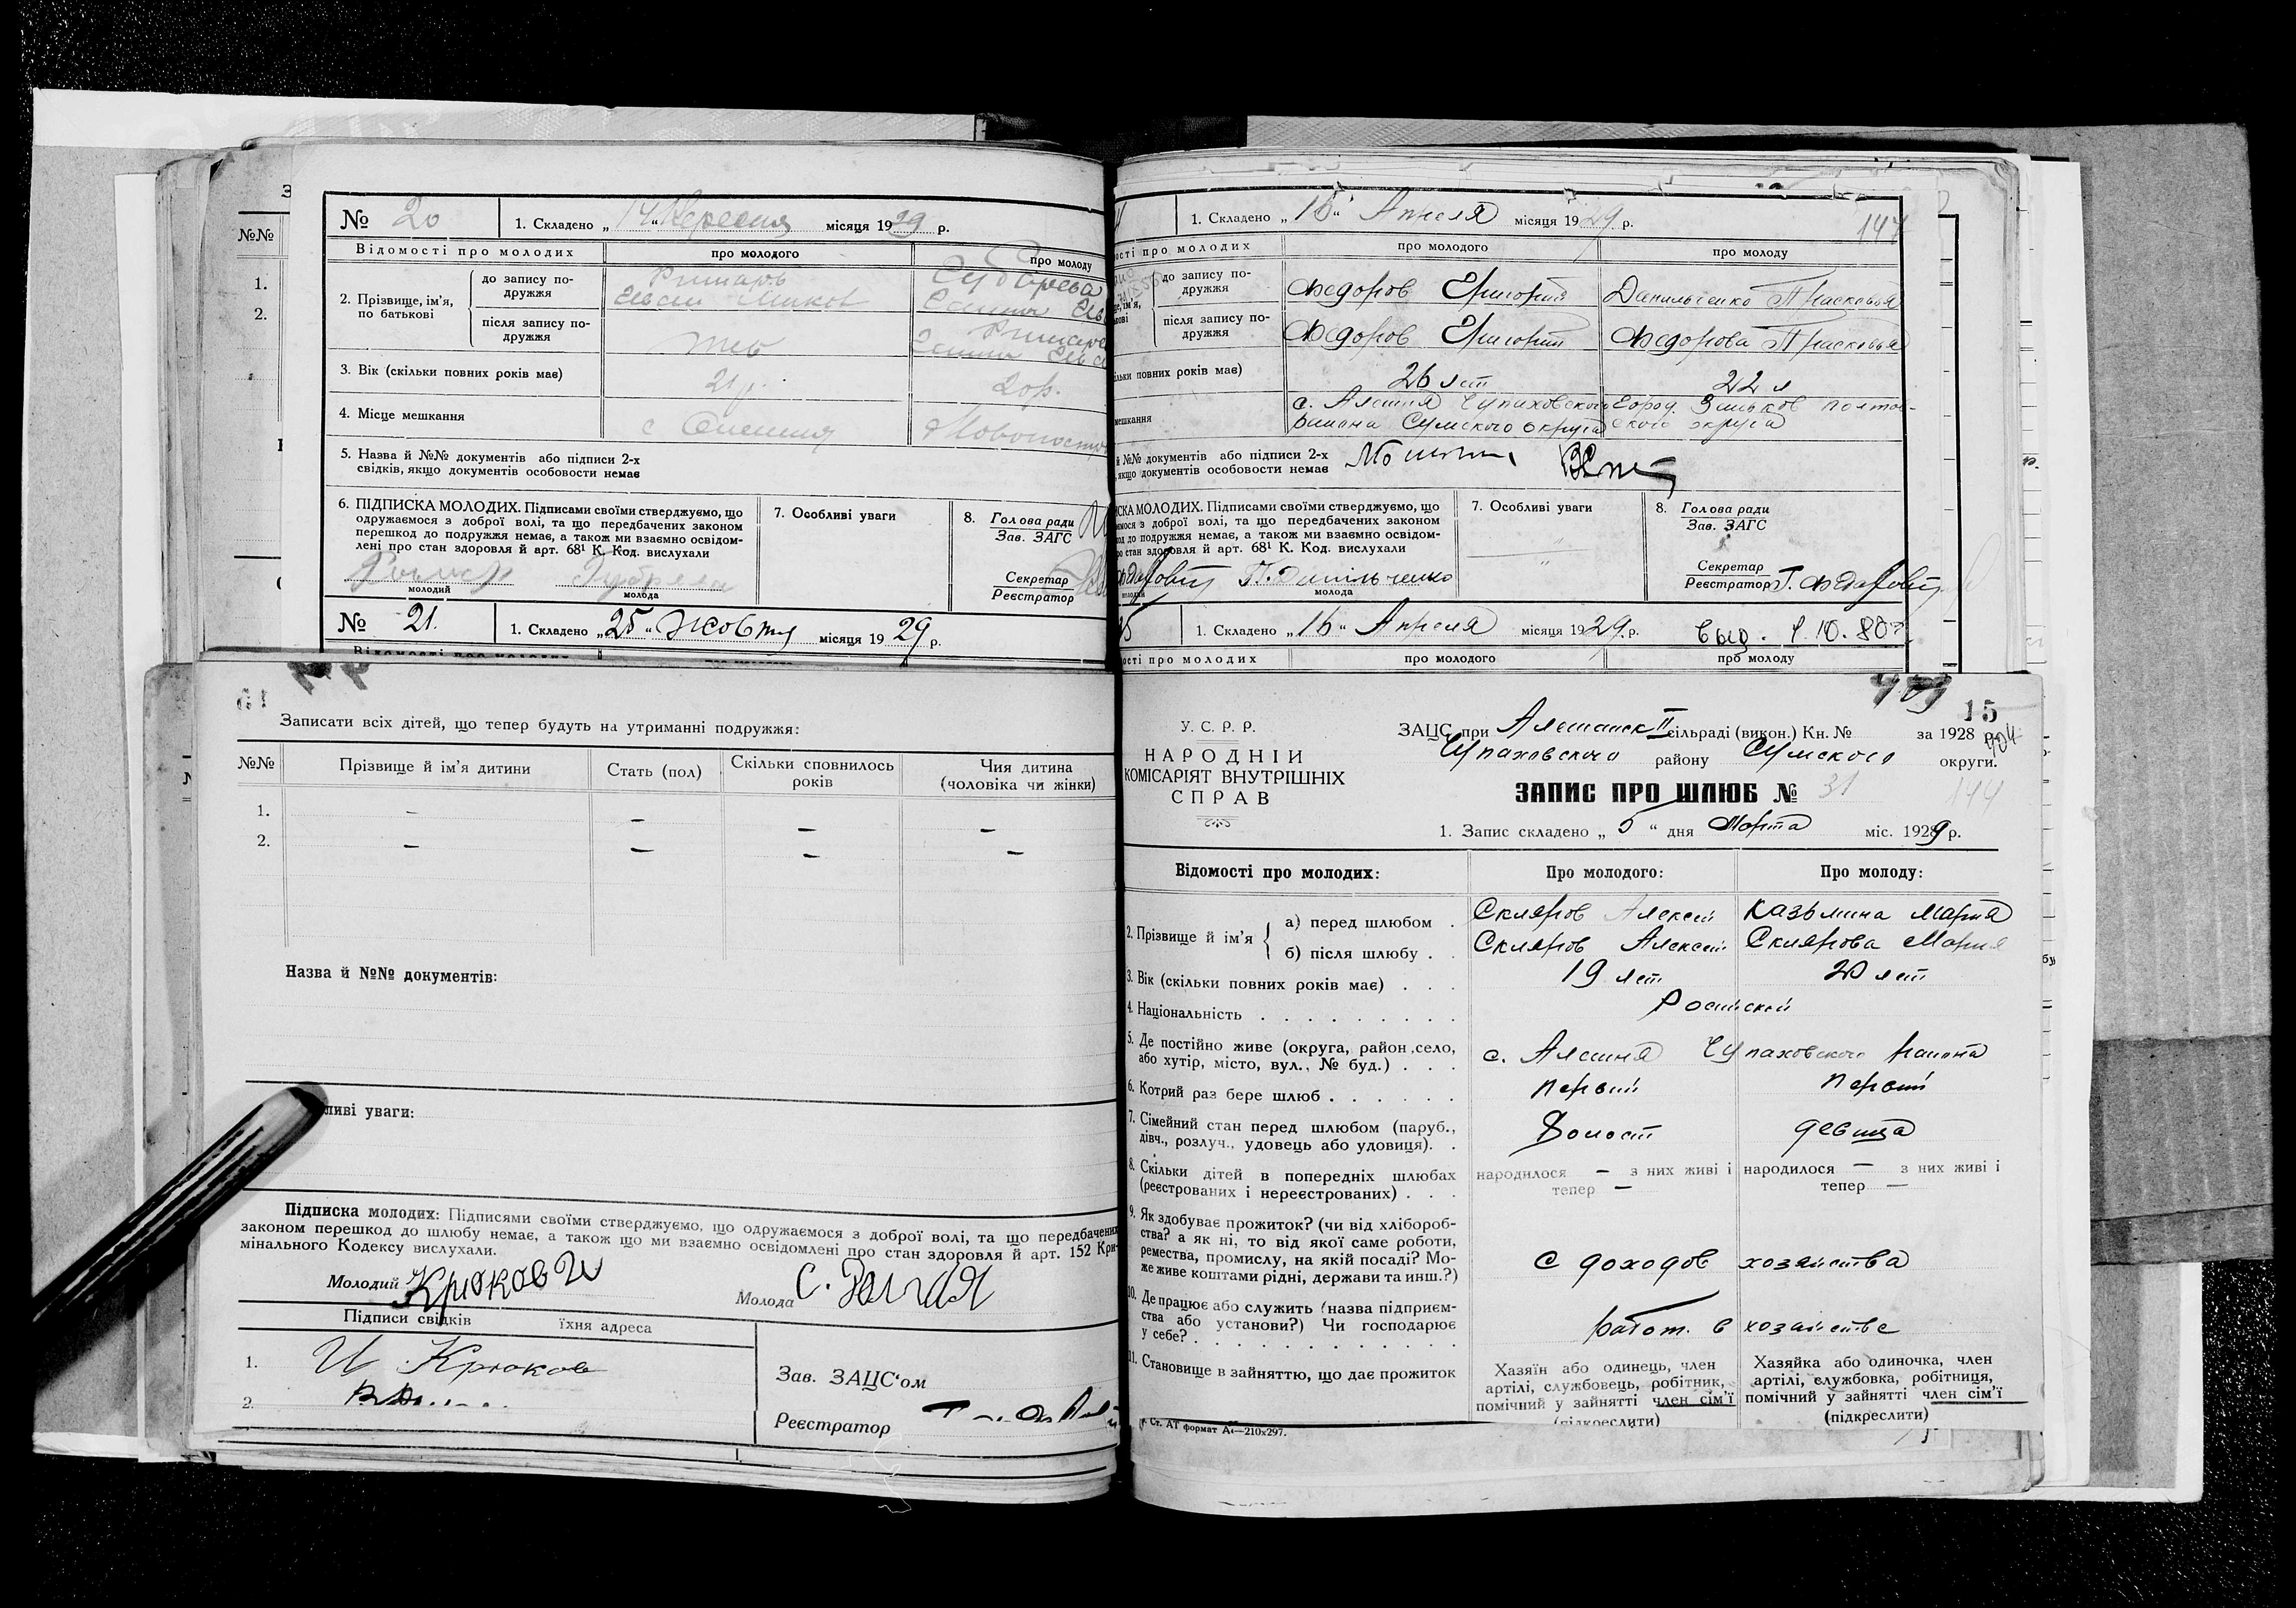 № 20
1. Складено „14“ Вересня місяця 1929 р.
Відомості про молодих
про молодого
про молоду
2. Прізвище, ім'я, по батькові
до запису подружжя
після запису подружжя
3. Вік (скільки повних років має)
21 р.
20 р.
4. Місце мешкання
5. Назва й №№ документів або підписи 2-х
свідків, якщо документів особовости немає
6. ПІДПИСКА МОЛОДИХ. Підписами своїми стверджуємо, що
одружаємося з доброї волі, та що передбачених законом
перешкод до подружжя немає, а також ми взаємно освідом-
лені про стан здоровля й арт. 68¹ К. Код. вислухали
молодий
молода
7. Особливі уваги
8. Голова ради
Зав. ЗАГС
Секретар
Реєстратор
№ 21.
1. Складено „25“ Жовтня місяця 1929 р.
№№
1.
2.
1. Складено „15“ Апреля місяця 1929 р.
147
ості про молодих
про молодого
про молоду
до запису по-
дружжя
Федоров Григорий
Данильченко Прасковья
після запису по-
дружжя
Федоров Григорий
Федорова Прасковья
ільки повних років має)
26 лет
22 л
мешкання
с. Алешня Чупаховского
района Сумского округа
Город. Зиньков полтав-
ского округа
й №№ документів або підписи 2-х
якщо документів особовости немає
ИСКА МОЛОДИХ. Підписами своїми стверджуємо, що
ємося з доброї волі, та що передбачених законом
код до подружжя немає, а також ми взаємно освідом-
ро стан здоровля й арт. 68¹ К. Код. вислухали
П. Данильченко
молодий
молода
7. Особливі уваги
8. Голова ради
Зав. ЗАГС
Секретар
Реєстратор
25
1. Складено „16“ Апреля місяця 1929 р.
ості про молодих
про молодого
про молоду
Записати всіх дітей, що тепер будуть на утриманні подружжя:
№№
Прізвище й ім'я дитини
Стать (пол)
Скільки сповнилось
років
Чия дитина
(чоловіка чи жінки)
1. – – – –
2. – – – –
Назва й №№ документів:
ливі уваги:
Підписка молодих: Підписями своїми стверджуємо, що одружаємося з доброї волі, та що передбачених
законом перешкод до шлюбу немає, а також що ми взаємно освідомлені про стан здоровля й арт. 152 Кри-
мінального Кодексу вислухали.
Молодий Крюков И
Молода
Підписи свідків
їхня адреса
1. И Крюков
2.
Зав. ЗАЦС'ом
Реєстратор
15
У. С. Р. Р.
НАРОДНІЙ
КОМІСАРІЯТ ВНУТРІШНІХ
СПРАВ
ЗАЦС при Алешанск II сільраді (викон.) Кн. № за 1928 р.
Чупаховского району Сумского округи.
ЗАПИС ПРО ШЛЮБ № 31
144
1. Запис складено „5“ дня Марта міс. 1929 р.
Відомості про молодих:
Про молодого:
Про молоду:
2. Прізвище й ім'я
а) перед шлюбом .
Скляров Алексей
Казьмина Мария
б) після шлюбу . .
Скляров Алексей
Склярова Мария
3. Вік (скільки повних років має) . . .
19 лет
20 лет
4. Національність . . . . . . . . .
Росийской
5. Де постійно живе (округа, район, село,
або хутір, місто, вул., № буд.) . . .
с. Алешня Чупаховского района
6. Котрий раз бере шлюб . . . . . .
первый
первый
7. Сімейний стан перед шлюбом (паруб.,
дівч., розлуч., удовець або удовиця). .
Холост
девица
8. Скільки дітей в попередніх шлюбах
(реєстрованих і нереєстрованих) . . .
народилося – з них живі і
тепер –
народилося – з них живі і
тепер –
9. Як здобуває прожиток? (чи від хлібороб-
ства? а як ні, то від якої саме роботи,
ремества, промислу, на якій посаді? Мо-
же живе коштами рідні, держави та инш.?)
С доходов хозяйства
10. Де працює або служить (назва підприєм-
ства або установи?) Чи господарює
у себе? . . . . . . . . . . . .
работ. в хозяйстве
11. Становище в зайняттю, що дає прожиток
Хазяїн або одинець, член
артілі, службовець, робітник,
помічний у зайнятті член сім'ї
(підкреслити)
Хазяйка або одиночка, член
артілі, службовка, робітниця,
помічний у зайнятті член сім'ї
(підкреслити)
Ст. АТ формат А4—210х297.